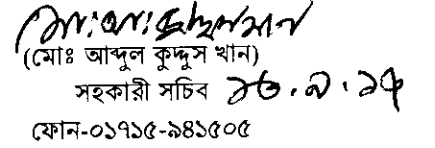 (মোঃ আব্দুল কুদ্দুস খান)
সহকারী সচিব ১৩.৯.১৫
ফোন-০১৭১৫-৯৪১৫০৫